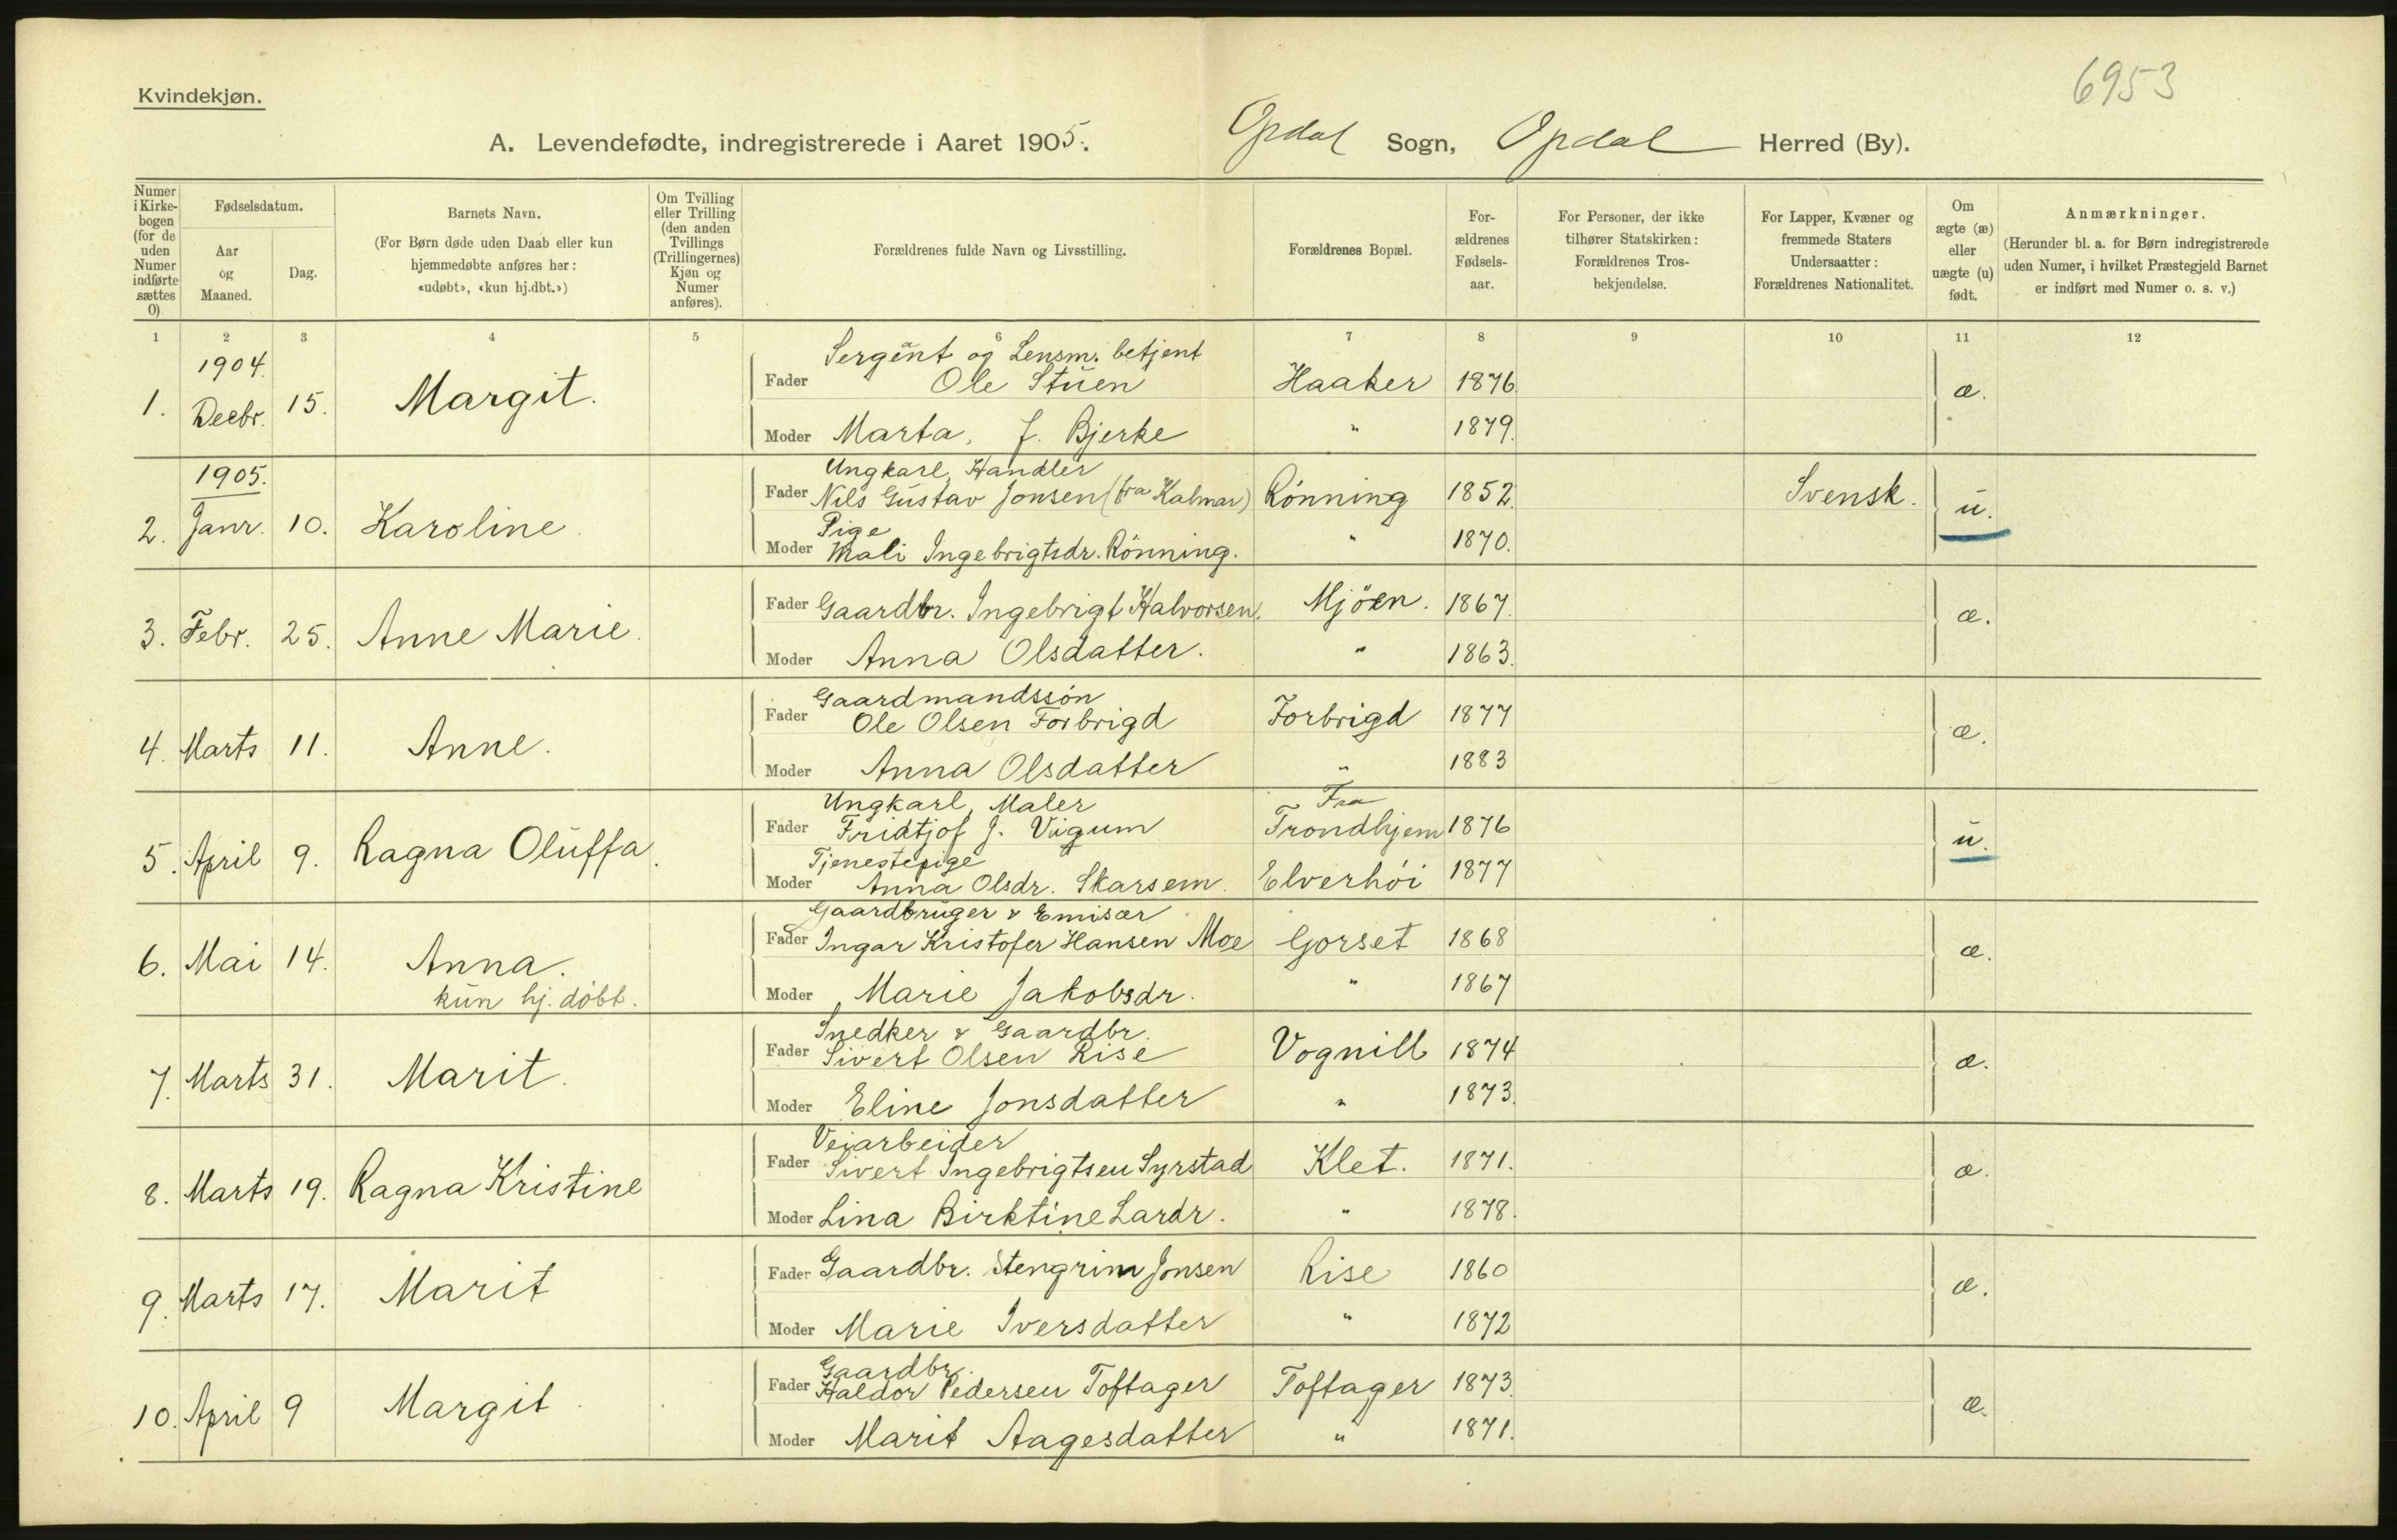 6953
Kvindekjøn.
A. Levendefødte, indregistrerede i Aaret 1905. Opdal Sogn, Opdal Herred (By).
Numer i Kirkebogen (for de uden Numer indførte sættes 0).
Fødselsdatum.
Aar og Maaned.
Dag.
Barnets Navn.
(For Børn døde uden Daab eller kun hjemmedøbte anføres her: «udøbt», «kun hj.dbt.»)
Om Tvilling eller Trilling (den anden Tvillings (Trillingernes) Kjøn og Numer anføres).
Forældrenes fulde Navn og Livsstilling.
Forældrenes Bopæl.
For-ældrenes Fødsels-aar.
For Personer, der ikke tilhører Statskirken: Forældrenes Tros-bekjendelse.
For Lapper, Kvæner og fremmede Staters Undersaatter: Forældrenes Nationalitet.
Om ægte (æ) eller uægte (u) født.
Anmærkninger.
(Herunder bl. a. for Børn indregistrerede uden Numer, i hvilket Præstegjeld Barnet er indført med Numer o. s. v.)
1 2 3 4 5 6 7 8 9 10 11 12
1904.
Sergent og Lensm. betjent
1. Decbr. 15. Margit. Fader Ole Stuen Haaker 1876. æ.
Moder Marta, f. Bjerke " 1879.
1905.
Ungkarl, Handler
2. Janr. 10. Karoline. Fader Nils Gustav Jonsen (fra Kalmar) Rönning 1852. Svensk. u.
Pige
Moder Mali Ingebrigtsdr. Rönning. " 1870.
3. Febr. 25. Anne Marie. Fader Gaardbr. Ingebrigt Halvorsen. Mjöen. 1867. æ.
Moder Anna Olsdatter. " 1863.
Gaardmandssön
4. Marts 11. Anne. Fader Ole Olsen Forbrigd Forbrigd 1877 æ.
Moder Anna Olsdatter " 1883
Ungkarl, Maler Fra
5. April 9. Ragna Oluffa. Fader Fridtjof J. Viigum Trondhjem 1876 u.
Tjenestepige
Moder Anna Olsdr. Skarsem. Elverhöi 1877
Gaardbruger & Emisær
6. Mai 14. Anna. Fader Ingar Kristofer Hansen Moe Gorset 1868 æ.
kun hj. döbt. Moder Marie Jakobsdr. " 1867
Snedker & Gaardbr.
7. Marts 31. Marit. Fader Sivert Olsen Rise Vognill 1874 æ.
Moder Eline Jonsdatter " 1873.
Veiarbeider
8. Marts 19. Ragna Kristine Fader Sivert Ingebrigtsen Syrstad Klet. 1871. æ.
Moder Lina Birktine Lardr. " 1878.
9. Marts 17. Marit Fader Gaardbr. Stengrim Jonsen Rise 1860 æ.
Moder Marie Iversdatter " 1872
Gaardbr.
10. April 9 Margit. Fader Haldor Pedersen Toftager Toftager 1873. æ.
Moder Marit Aagesdatter " 1871.